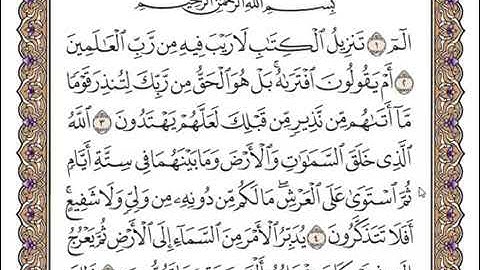 بِسْمِ اللَّهِ الرَّحْمَٰنِ الرَّحِيمِ
الٓمٓ ١ تَنزِيلُ الْكِتَٰبِ لَا رَيْبَ فِيهِ مِن رَّبِّ الْعَٰلَمِينَ
٢ أَمْ يَقُولُونَ افْتَرَىٰهُ ۚ بَلْ هُوَ الْحَقُّ مِن رَّبِّكَ لِتُنذِرَ قَوْمًا
مَّآ أَتَىٰهُم مِّن نَّذِيرٍ مِّن قَبْلِكَ لَعَلَّهُمْ يَهْتَدُونَ ٣ اللَّهُ
الَّذِي خَلَقَ السَّمَٰوَٰتِ وَالْأَرْضَ وَمَا بَيْنَهُمَا فِي سِتَّةِ أَيَّامٍ
ثُمَّ اسْتَوَىٰ عَلَى الْعَرْشِ ۖ مَا لَكُم مِّن دُونِهِۦ مِن وَلِيٍّ وَلَا شَفِيعٍ ۚ
أَفَلَا تَتَذَكَّرُونَ ٤ يُدَبِّرُ الْأَمْرَ مِنَ السَّمَآءِ إِلَى الْأَرْضِ ثُمَّ يَعْرُجُ